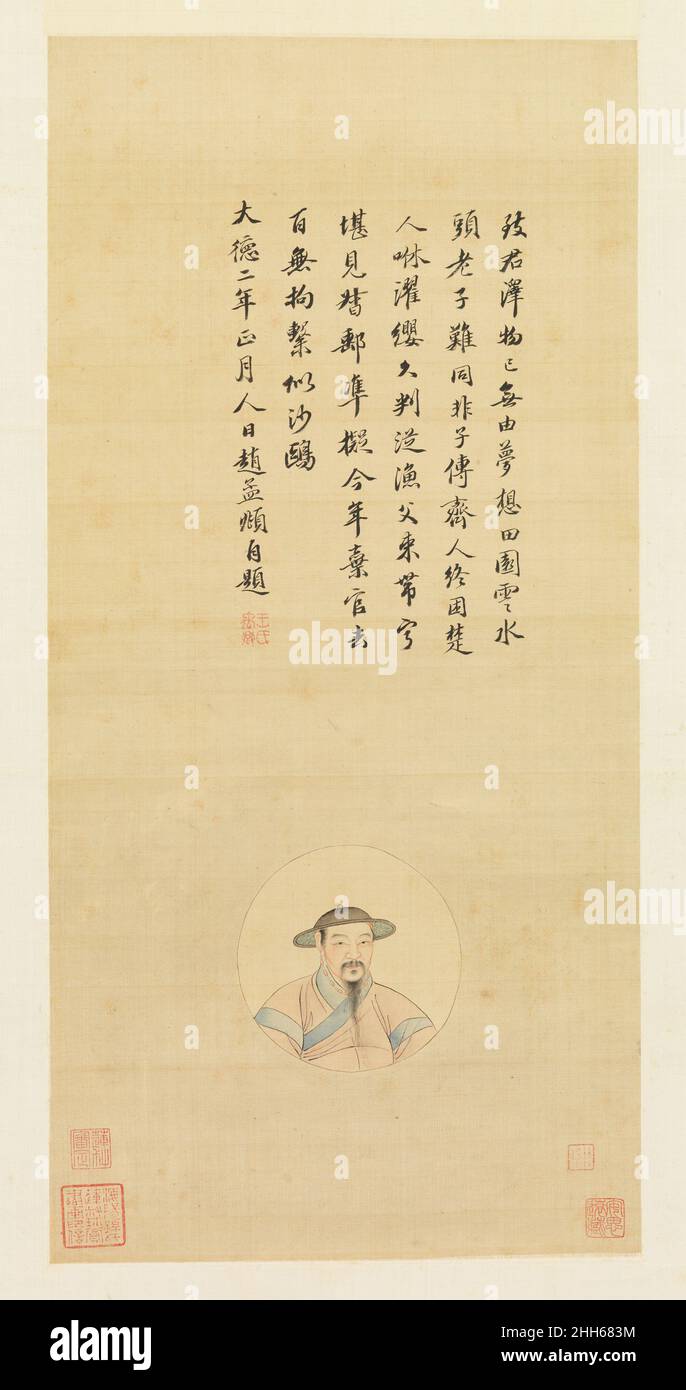 致君澤物已無由夢想田園雲水
頭老子難同非子傳齊人終困楚
人咻濯纓久判從漁父束帶寧
堪見督郵準擬今年棄官去
百無拘繫似沙鷗
大德二年正月人日趙孟頫自題
alamy
Image ID: 2HH683M
www.alamy.com